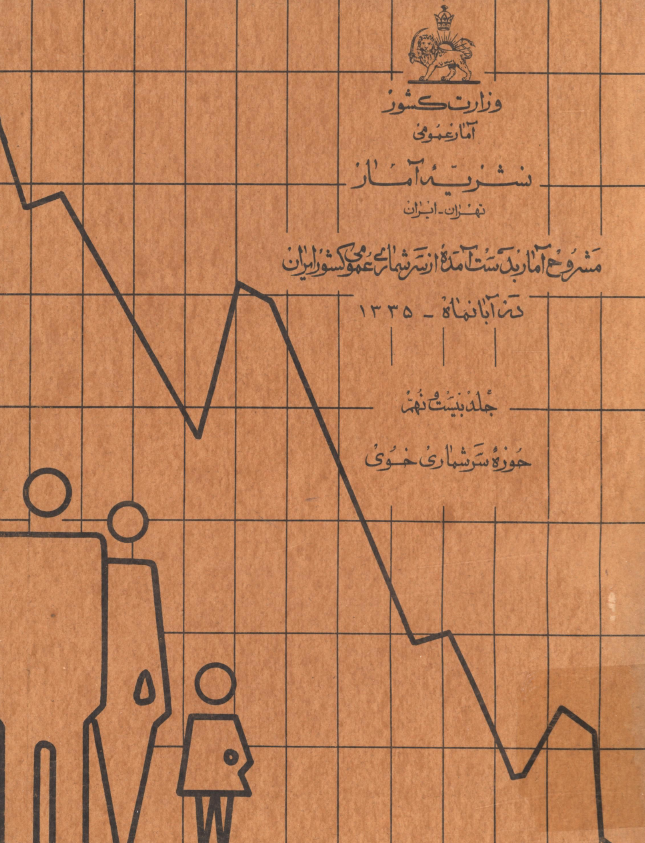 وزارت کشور
آمار عمومی
نشریه آمار
تهران - ایران
مشروح آمار بدست آمده از سرشماری عمومی کشور ایران
در آبانماه - ۱۳۳۵
جلد بیست و نهم
حوزه سرشماری خوی